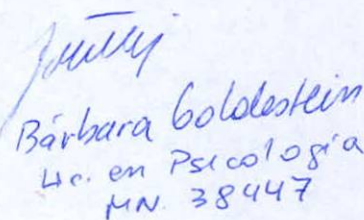 Bárbara Goldestein
Lic. en Psicología
MN. 38447